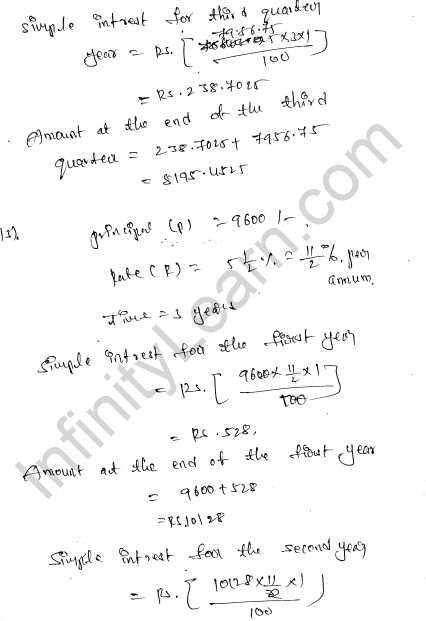 Simple interest for third quarter
7956.75
year = Rs. [ ×3×1 / 100 ]
= Rs. 238.7025
Amount at the end of the third
quarter = 238.7025 + 7956.75
= 8195.4525
15)
principal (P) = 9600 /-
Rate (R) = 5 1/2 % = 11/2 %. per
annum.
Time = 3 years
Simple interest for the first year
= Rs. [ 9600 × 11/2 × 1 / 100 ]
= Rs. 528.
Amount at the end of the first year
= 9600 + 528
= Rs. 10128
Simple interest for the second year
= Rs. [ 10128 × 11/2 × 1 / 100 ]
InfinityLearn.com